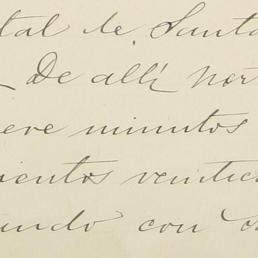 tal de Santa
De allí nor
eve minutos
ientos veintic
undo con